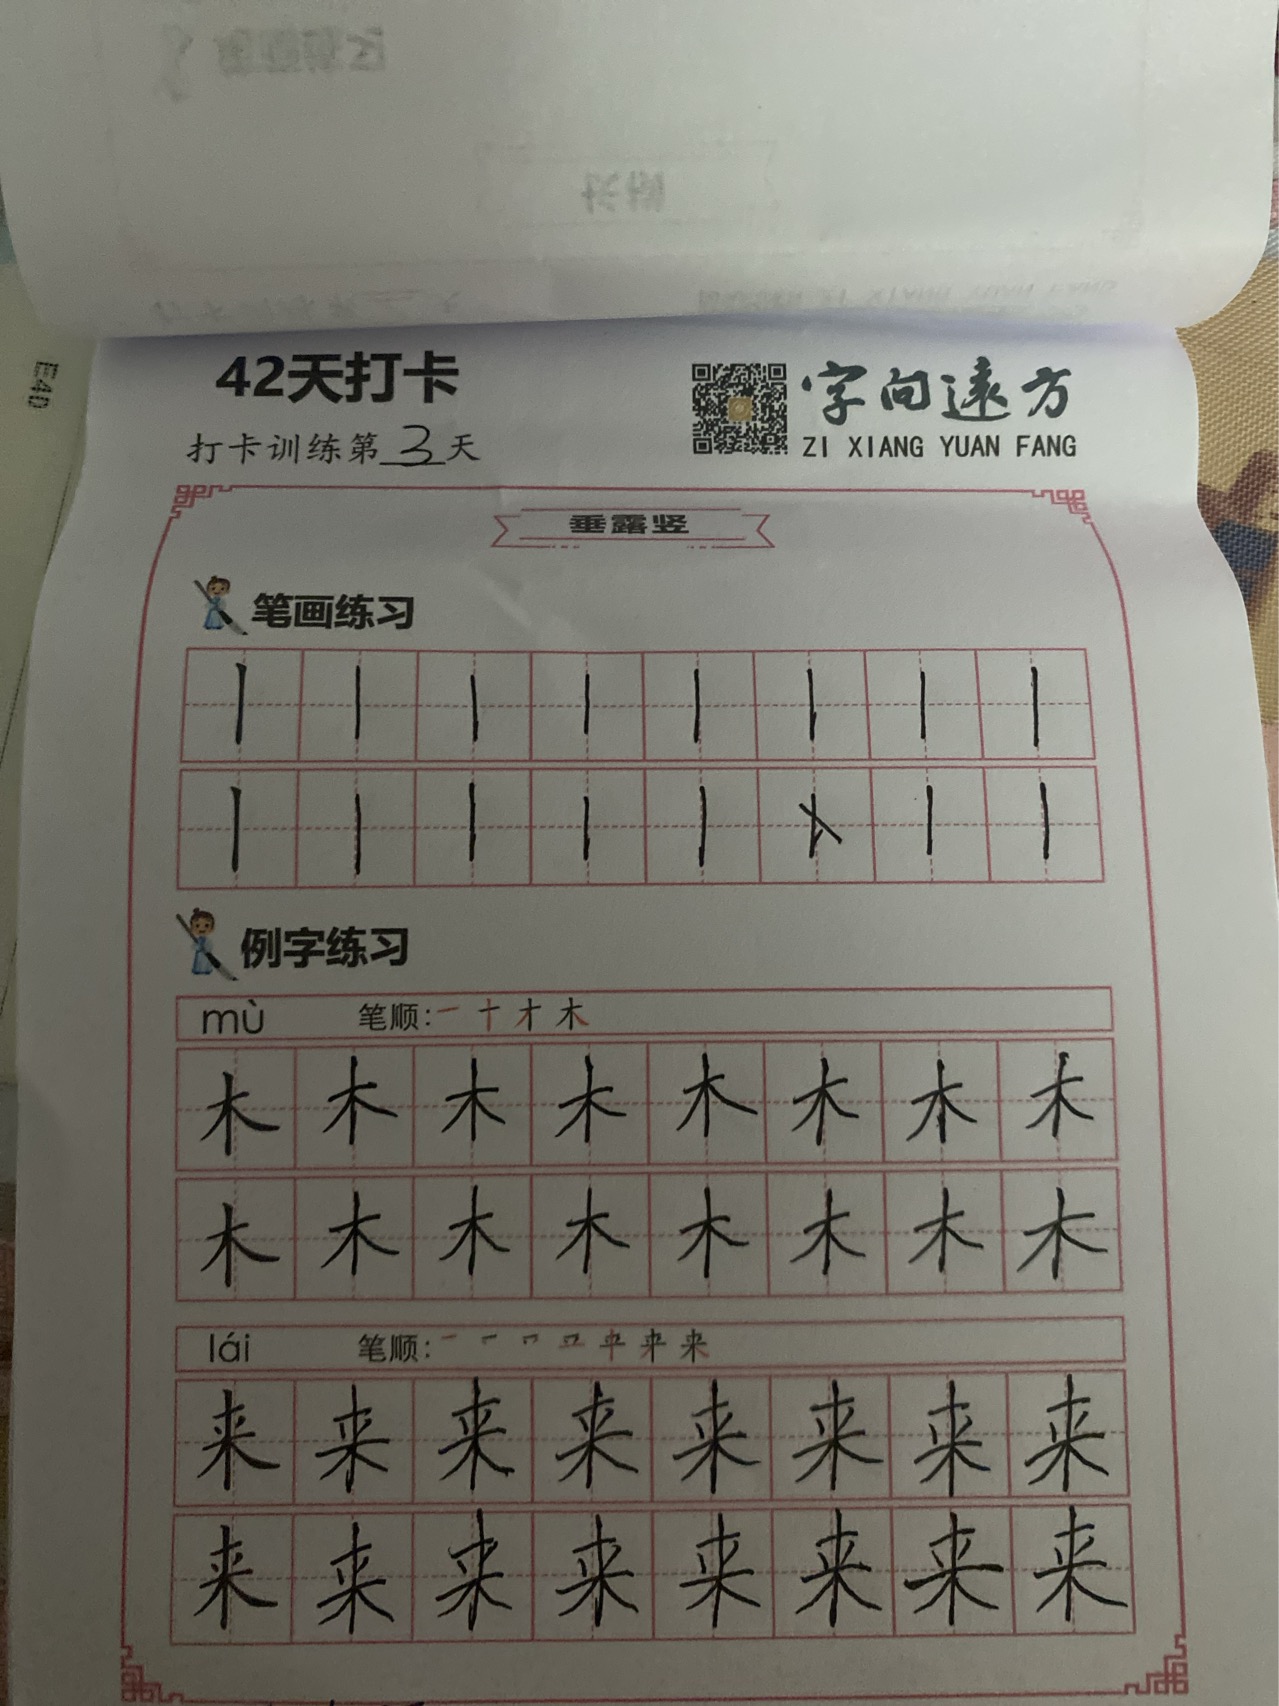 E40
42天打卡
字向遠方
打卡训练第3天
ZI XIANG YUAN FANG
垂露竖
笔画练习
丨 丨 丨 丨 丨 丨 丨 丨
丨 丨 丨 丨 丨 丨 丨
例字练习
mù 笔顺: 一 十 才 木
木 木 木 木 木 木 木 木
木 木 木 木 木 木 木 木
lái 笔顺:
来 来 来 来 来 来 来 来
来 来 来 来 来 来 来 来